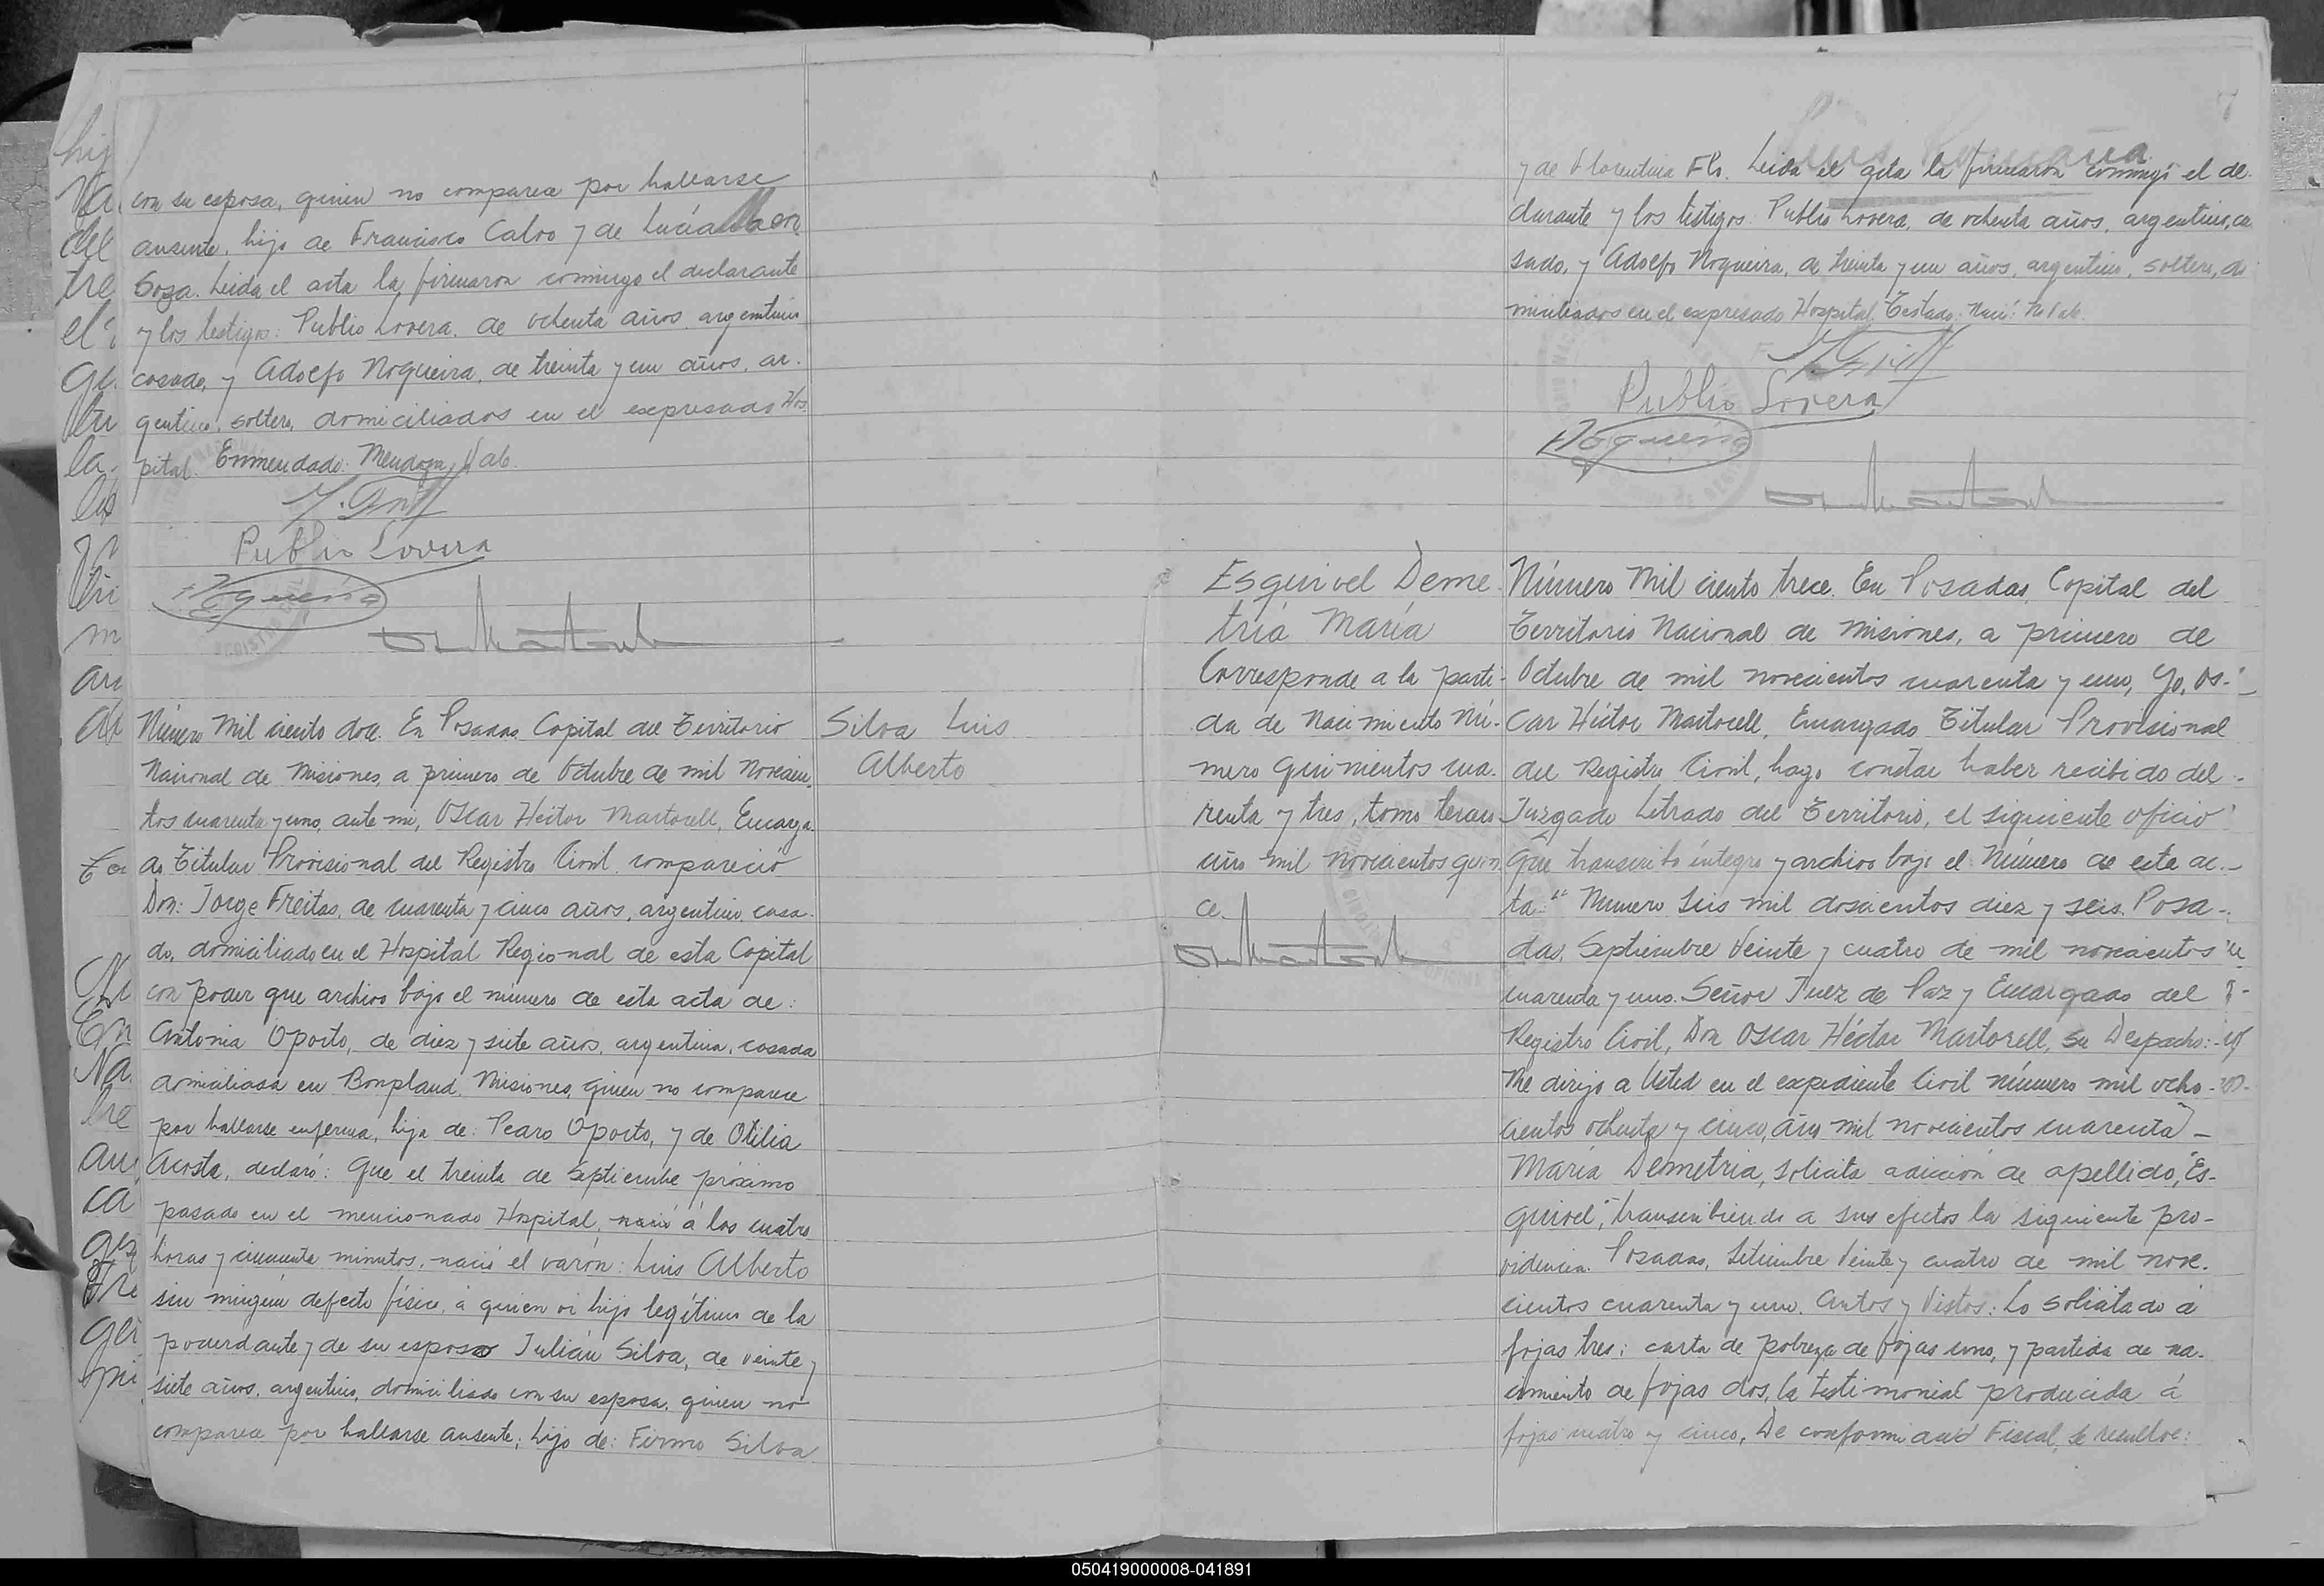 con su esposa, quien no comparece por hallarse
ausente, hijo de Francisco Calvo y de Lucía
Soza. Leida el acta la firmaron conmigo el declarante
y los testigos: Publio Lovera, de ochenta años, argentino
casado, y Adolfo Nogueira, de treinta y un años, ar-
gentino, soltero, domiciliados en el expresado Hos
pital. Enmendado: Mendoza, Vale.
Publio Lovera
Nogueira
Número Mil ciento doce. En Posadas Capital del Territorio
Nacional de Misiones, a primero de Octubre de mil novecien
tos cuarenta y uno, ante mi, Oscar Héctor Martorell, Encarga-
do Titular Provisional del Registro Civil, compareció
Don: Jorge Freitas, de cuarenta y cinco años, argentino, casa-
do, domiciliado en el Hospital Regional de esta Capital
con poder que archivo bajo el número de esta acta de:
Antonia Oporto, de diez y siete años, argentina, casada
domiciliada en Bonpland, Misiones, quien no comparece
por hallarse enferma, hija de: Pedro Oporto, y de Otilia
Acosta, declaró: Que el treinta de Septiembre próximo
pasado en el mencionado Hospital, nació á las cuatro
horas y cincuenta minutos, nació el varón: Luis Alberto
sin ningún defecto físico, á quien vi hijo legítimo de la
poderdante y de su esposo Julián Silva, de veinte y
siete años, argentino, domiciliado con su esposa, quien no
comparece por hallarse ausente; hijo de: Firmo Silva
Silva Luis
Alberto
y de Florentina Leida el acta la firmaron conmigo el de-
clarante y los testigos: Publio Lovera, de ochenta años, argentino, ca
sado, y Adolfo Nogueira, de treinta y un años, argentino, soltero, do
miciliados en el expresado Hospital. Testado: Nació: No Vale.
Publio Lovera
Nogueira
Esquivel Deme
tria María
Corresponde a la parti-
da de Nacimiento Nú-
mero quinientos cua-
renta y tres, tomo tercero
año mil novecientos quin
ce.
Número Mil ciento trece. En Posadas, Capital del
Territorio Nacional de Misiones, a primero de
Octubre de mil novecientos cuarenta y uno, Yo, Os-
car Héctor Martorell, Encargado Titular Provisional
del Registro Civil, hago constar haber recibido del
Juzgado Letrado del Territorio, el siguiente oficio
que transcribo íntegro y archivo bajo el Número de esta ac-
ta: "Numero Seis mil doscientos diez y seis. Posa-
das, Septiembre Veinte y cuatro de mil novecientos
cuarenta y uno. Señor Juez de Paz y Encargado del
Registro Civil, Don Oscar Héctor Martorell, Su Despacho:-
Me dirijo a Usted en el expediente Civil número mil ocho-
cientos ochenta y cinco, año mil novecientos cuarenta
María Demetria, solicita adición de apellido, "Es-
quivel", transcribiendo a sus efectos la siguiente pro-
videncia. Posadas, Setiembre Veinte y cuatro de mil nove-
cientos cuarenta y uno. Autos y Vistos: Lo solicitado á
fojas tres; carta de pobreza de fojas uno, y partida de na-
cimiento de fojas dos, la testimonial producida á
fojas cuatro y cinco, De conformidad Fiscal, se resuelve:
050419000008-041891